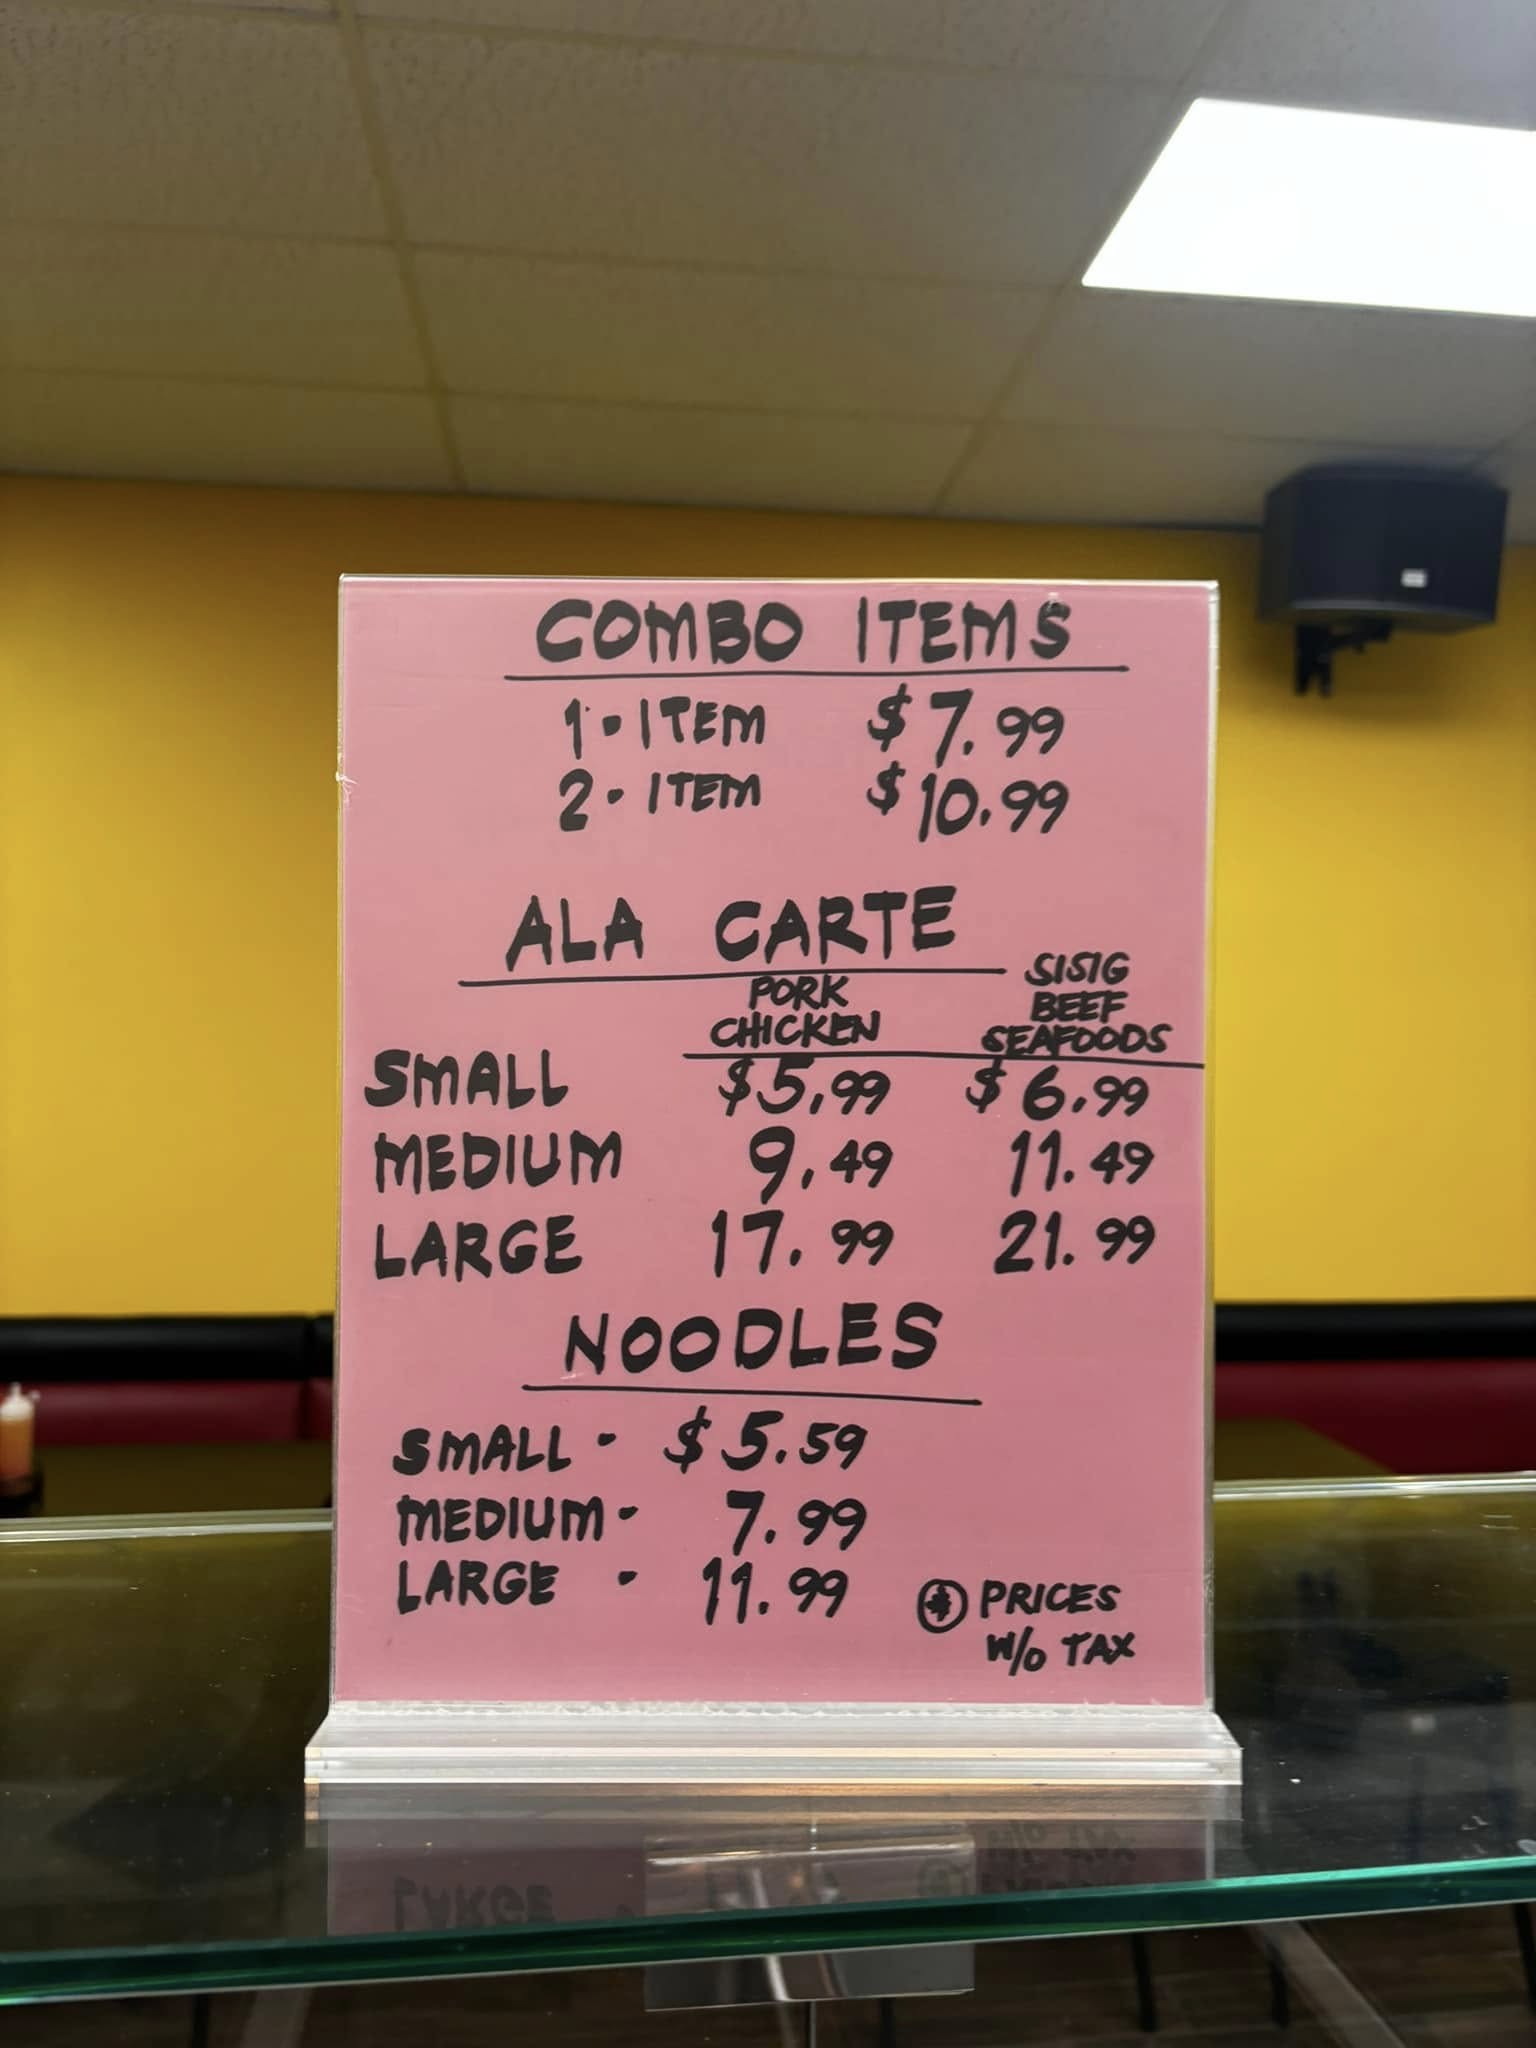 COMBO ITEMS
1 - ITEM $7.99
2 - ITEM $10.99
ALA CARTE
PORK CHICKEN SISIG BEEF SEAFOODS
SMALL $5.99 $6.99
MEDIUM 9.49 11.49
LARGE 17.99 21.99
NOODLES
SMALL - $5.59
MEDIUM - 7.99
LARGE - 11.99
* PRICES
W/O TAX